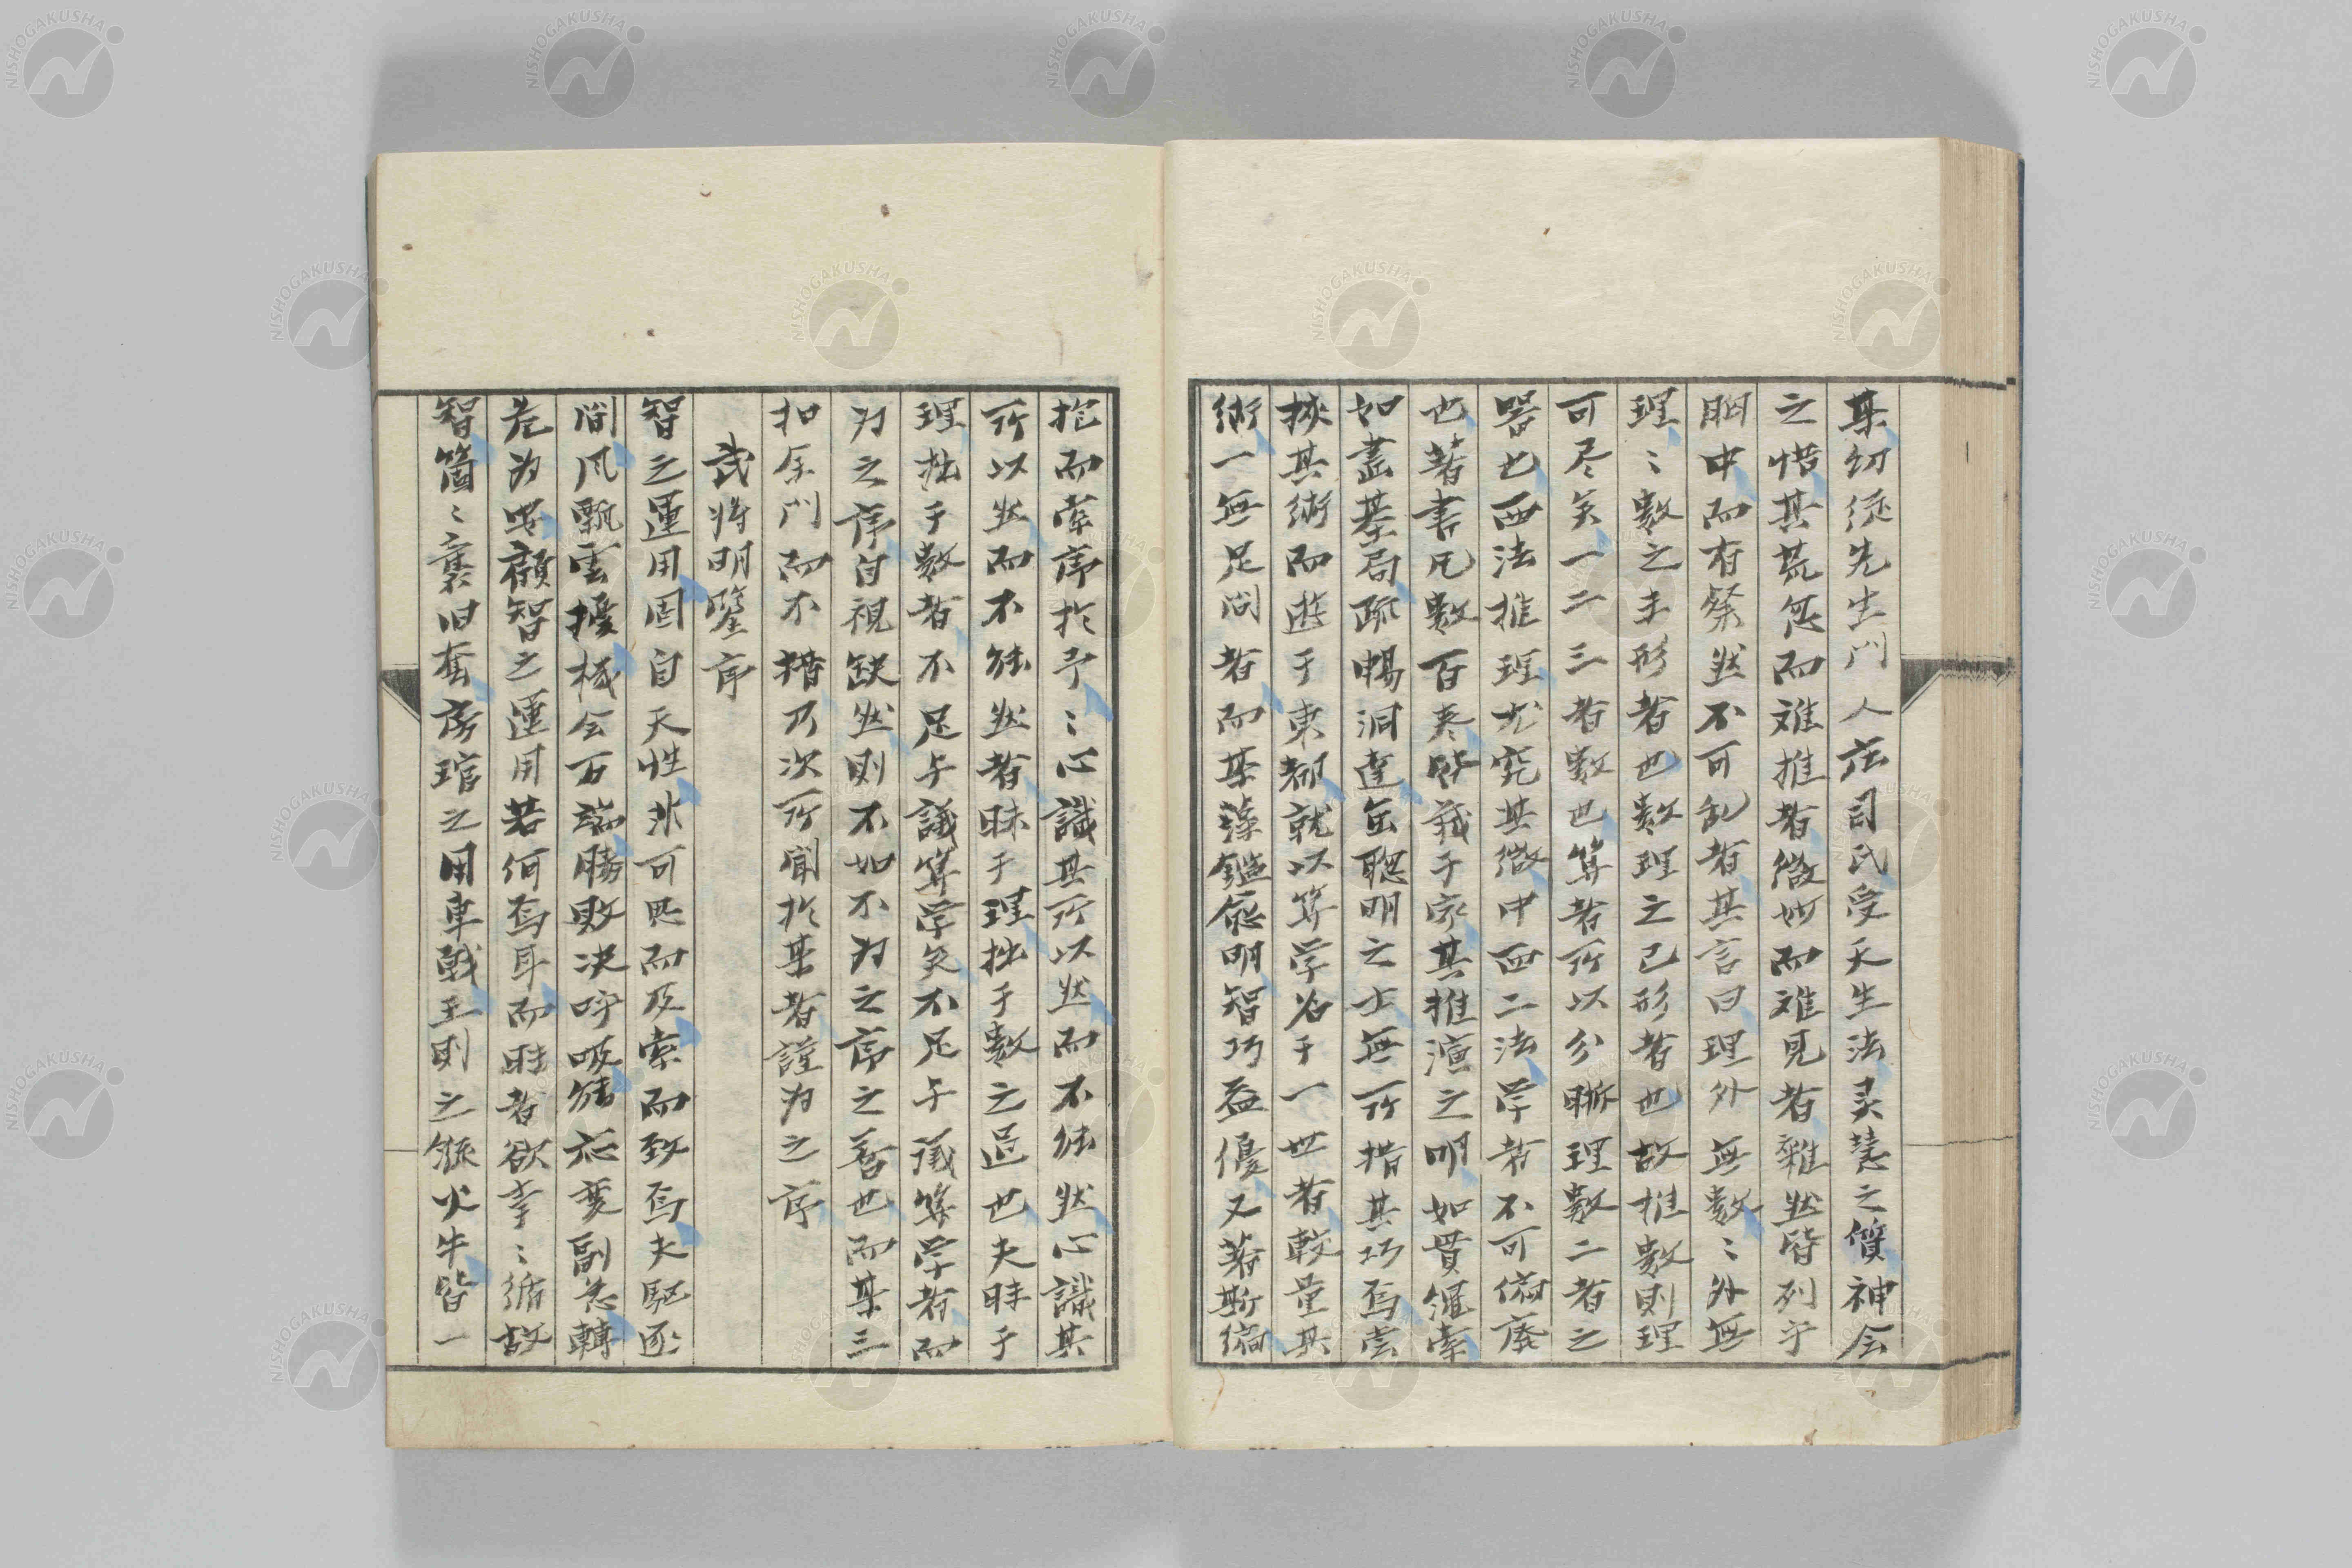 某幼從先生門人庄司氏受天生法灵慧之質神会
之悟其荒忽而难推者微妙而难見者雜然皆列于
胸中而有粲然不可乱者其言曰理外無數〻外無
理〻數之未形者也數理之已形者也故推數則理
可尽矣一二三者數也算者所以分晰理數二者之
器也西法推理尤究其微中西二法学者不可偏廃
也著書凡數百巻皆蔵于家其推演之明如貫羅索
如畫碁局疏暢洞達缶聰明之士無所措其巧焉嘗
挾其術而遊于東都就以算学名于一世者較量其
術一無足问者而某藻鑑愈明智巧益優又著斯編
抱而索序於予〻心識其所以然而不能然心識其
所以然而不能然者昧于理拙于數之过也夫昧于
理拙于數者不足与議算学矣不足与議算学者而
为之序自視缺然則不如不为之序之善也而某三
扣余门而不措乃次所聞於某者謹为之序
武将明鑒序
智之運用固自天性非可思而及索而致焉夫駆逐
间风飄雲擾機会万端勝敗决呼吸能应変副急轉
危为安顧智之運用若何焉耳而昧者欲拳〻循故
智箇〻襲旧套房琯之用車戦王則之縱火牛皆一